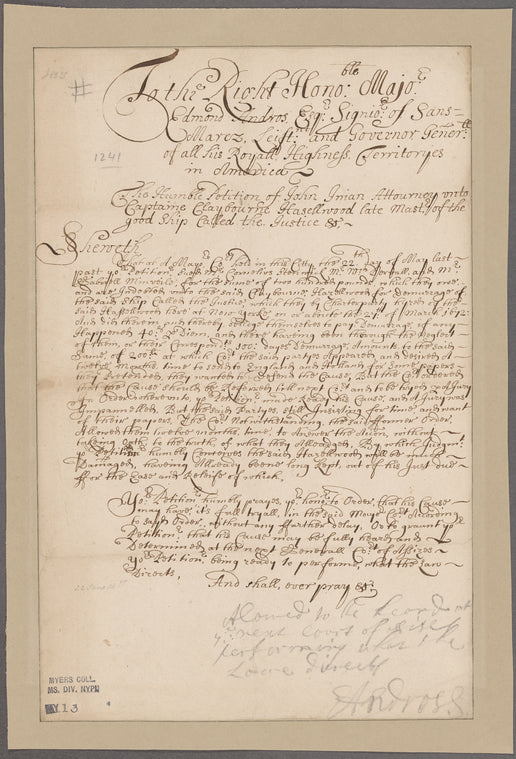 1241
#
To the Right Honoble: Major
Edmond Andros, Esqr: Signior of Sans=
Marez, Leift: and Governor Generll
of all his Royall Highness Territoryes
in America
The Humble Petition of John Inian Attourney unto
Captaine Claybourne Haselwood late Mastr of the
good Ship Called the Justice &c
Sheweth
That at a Mayors Cort held in this Citty the 22th day of May last
past yor Petitionr Sued Mr Cornelius Steenwick, Mr and Mr
Gabriell Minviele, for the sume of two hundred pounds, which they owe
and are Indebted unto the said Claybourne Haselwood for demurrage of
the said Ship Called the Justice, which they by Charterparty hyred of the
said Haselwood here at New Yorke on or about the 21st of March 1672
And did therein and thereby oblige themselves to pay Demurrage, if any
Happened 40s p Diem, and there haveing been through the Neglect
of them, or their Correspondts 100 days Demurrage, Amounts to the said
Sume, of 200£ at which Cort the said partyes Appeared, and desired A
twelve Months time to send to England and Holland for Some papers
they Pretended they wanted to defend the Cause, But the Cort Ordered
that the Cause should be Referred till next Cort and to be tryed by A Jury
yor Petitionr made Ready his Cause, and A Jury was
Impannelled, But the said Partyes, still Insisting for time and want
of their papers, The Cort Notwithstanding the said former Order,
Allowed them twelve months time, to Answer the Action, without
takeing oath to the truth, of what they Alleadged, By which Judgmt
yor Petitionr humbly Conceives the said Haselwood will be much
Damaged, haveing Allready beene long kept, out of his Just due
ffor the Ease and Releife of which,
Yor Petitionr humbly prayes, yor honor to Order, that his Cause
may have, its full tryall, in the said Mayors Cort According
to said Order, without any ffarther delay, Or to graunt yor
Petitionr, that his Cause may be fully heard and
Determined at the next Generall Cort of Assizes
yor Petitionr being ready to performe, what the Law
Directs,
And shall, ever pray &c
Alowed to be heard at
ye next Court of Assises
performing what the
Lawe directs
EAndross
MYERS COLL.
MS. DIV. NYPL
13